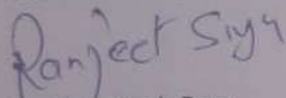 Ranjeet Siyn